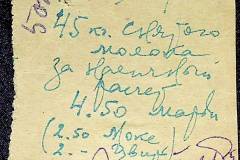 45 кг. снятого
молока
за наличный
расчет
4.50 марки
(2.50 Моке
2. -